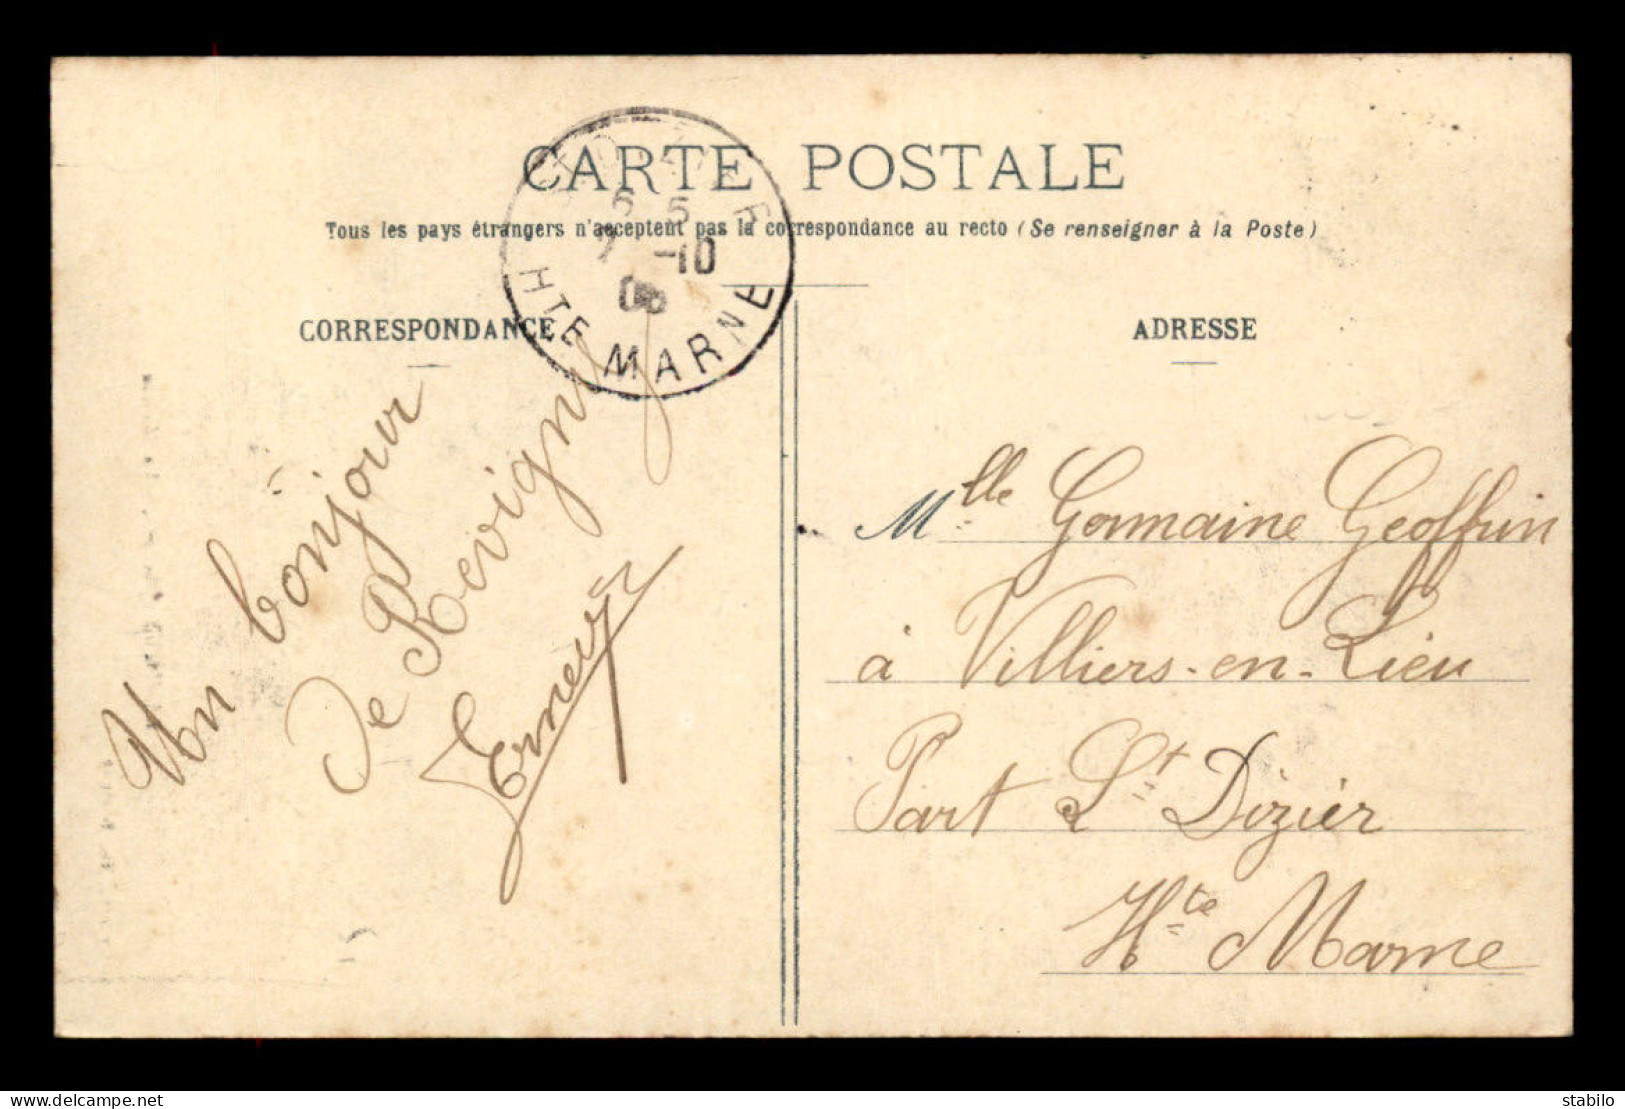 CARTE POSTALE
Tous les pays étrangers n'acceptent pas la correspondance au recto (Se renseigner à la Poste)
7 -10
HTE MARNE
CORRESPONDANCE
ADRESSE
Un bonjour
De Revigny
Mlle Germaine Geoffrin
à Villiers-en-Lieu
Part St Dizier
Hte Marne
stabilo